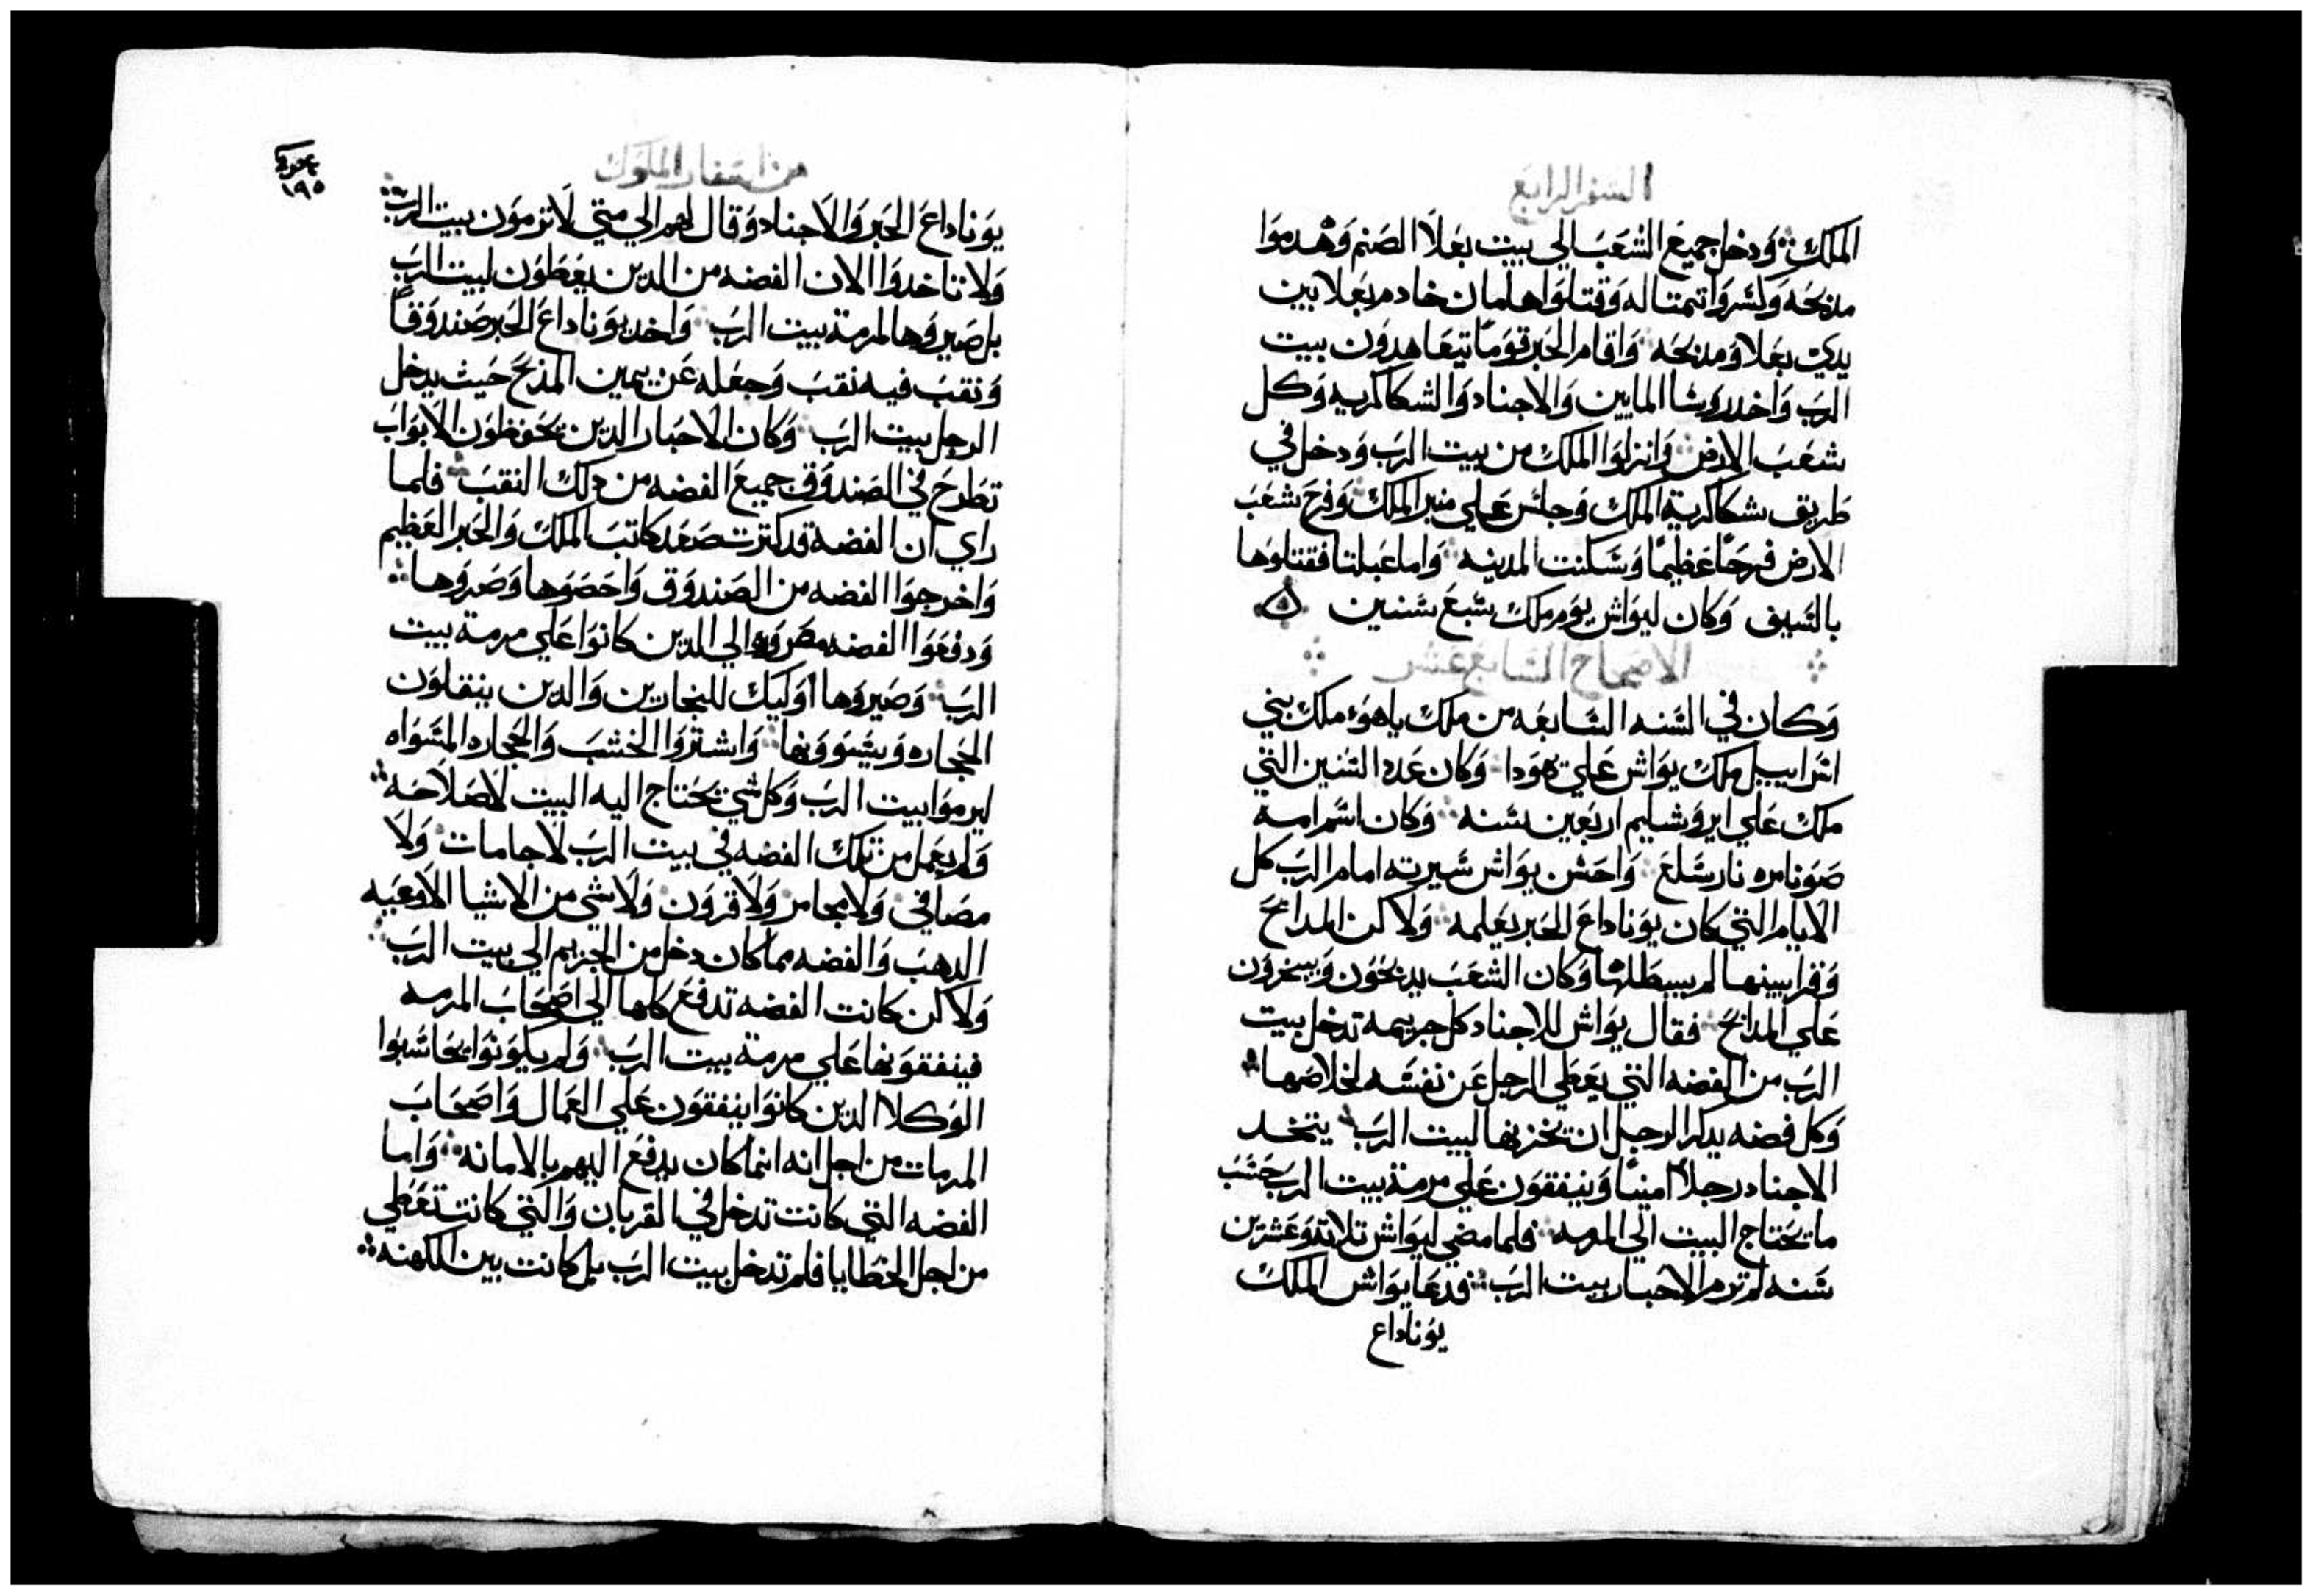 السفر الرابع
الملك ودخل جميع الشعب الي بيت بعلا الصنم وهدموا
مدبحه وكسروا تمتاله وقتلوا هامان خادم بعلا بين
يدي بعلا ومدبحه واقام الحبر قوما يتعاهدون بيت
الرب واخد روسا المايين والاجناد والشكاكريه وكل
شعب الارض وانزلوا الملك من بيت الرب ودخل في
طريق شكاكرية الملك وجلس علي منبر الملك وفرح شعب
الارض فرحا عظيما وسكنت المدينه واما عبلتا فقتلوها
بالسيف وكان ليواش يوم ملك سبع سنين
الاصحاح السابع عشر
وكان في السنه السابعه من ملك ياهو ملك بني
اسراييل ملك يواش علي يهودا وكان عدد السنين التي
ملك علي ايروشليم اربعين سنه وكان اسم امه
من بيرسبع واحسن يواش سيرته امام الرب كل
الايام التي كان يوناداع الحبر يعلمه ولاكن المدابح
وقرابينها لم يبطلها وكان الشعب يدبحون ويبخرون
علي المدابح فقال يواش للاجناد كل جريمه تدخل بيت
الرب من الفضه التي يعطي الرجل عن نفسه لخلاصها
وكل فضه يدكر الرجل ان يخزنها لبيت الرب يتخد
الاجناد رجلا امينا وينفقون علي مرمة بيت الرب حسب
ما يحتاج البيت الي المرمه فلما مضي ليواش تلاتة وعشرين
سنه لم ترم الاحبار بيت الرب فدعا يواش الملك
يوناداع
من اسفار الملوك
١٩٥
يوناداع الحبر والاجناد وقال لهم الي متي لا ترمون بيت الرب
ولا تاخدوا الان الفضه من الدين يعطون لبيت الرب
بل صيروها لمرمة بيت الرب واخد يوناداع الحبر صندوقا
ونقب فيه نقب وجعله عن يمين المدبح حيث يدخل
الرجل بيت الرب وكان الاحبار الدين يحفظون الابواب
تطرح في الصندوق جميع الفضه من دلك النقب فلما
راي ان الفضه قد كترت صعد كاتب الملك والحبر العظيم
واخرجوا الفضه من الصندوق واحصوها وصروها
ودفعوا الفضه مصروره الي الدين كانوا علي مرمة بيت
الرب وصيروها اوليك للنجارين والدين ينقلون
الحجاره ويسووونها واشتروا الخشب والحجاره المسواه
ليرموا بيت الرب وكل شي يحتاج اليه البيت لاصلاحه
ولم يعمل من تلك الفضه في بيت الرب لا جامات ولا
مصافي ولا مجامر ولا قرون ولا شي من الاشيا الاوعيه
الدهب والفضه مما كان دخل من الجزيم الي بيت الرب
ولاكن كانت الفضه تدفع كلها الي اصحاب المرمه
فينفقونها علي مرمة بيت الرب ولم يكونوا يحاسبوا
الوكلا الدين كانوا ينفقون علي العمال واصحاب
المرمات من اجل انه انما كان يدفع اليهم بالامانه واما
الفضه التي كانت تدخل في القربان والتي كانت تعطي
من اجل الخطايا فلم تدخل بيت الرب بل كانت بين الكهنه